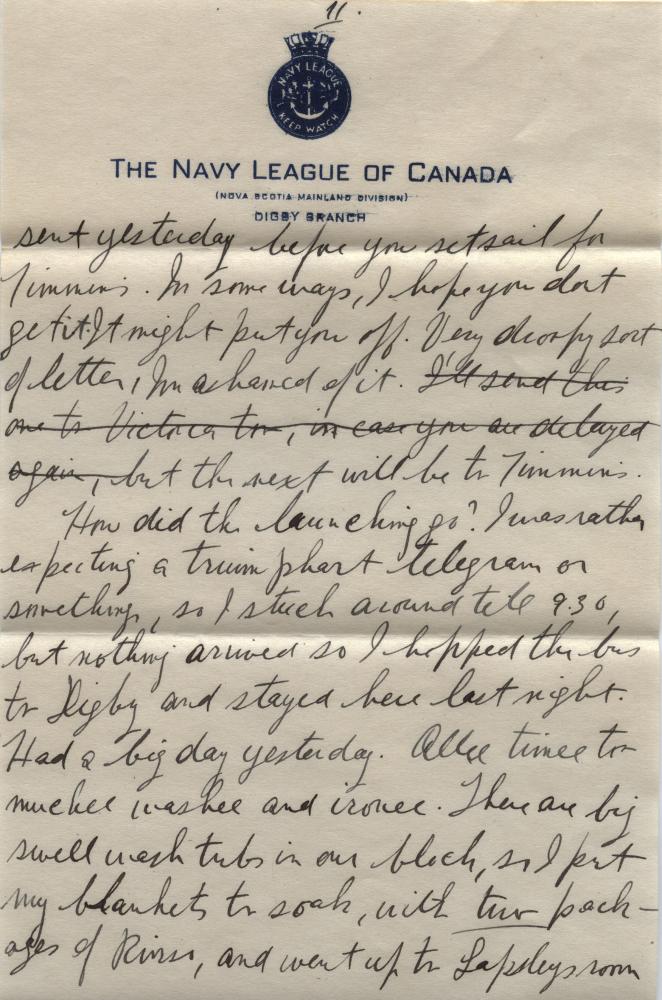 11.
NAVY LEAGUE
KEEP WATCH
THE NAVY LEAGUE OF CANADA
(NOVA SCOTIA MAINLAND DIVISION)
DIGBY BRANCH
sent yesterday before you set sail for
Timmins. In some ways, I hope you dont
get it. It might put you off. Very droopy sort
of letter, Im ashamed of it. I'll send this
one to Victoria too, in case you are delayed
again, but the next will be to Timmins.
How did the launching go? I was rather
expecting a triumphant telegram or
something, so I stuck around till 9.30,
but nothing arrived so I hopped the bus
to Digby and stayed here last night.
Had a big day yesterday. Allee timee too
muchee washee and ironee. There are big
swell wash tubs in our block, so I put
my blankets to soak, with two pack-
ages of Rinso, and went up to Lapsleys room